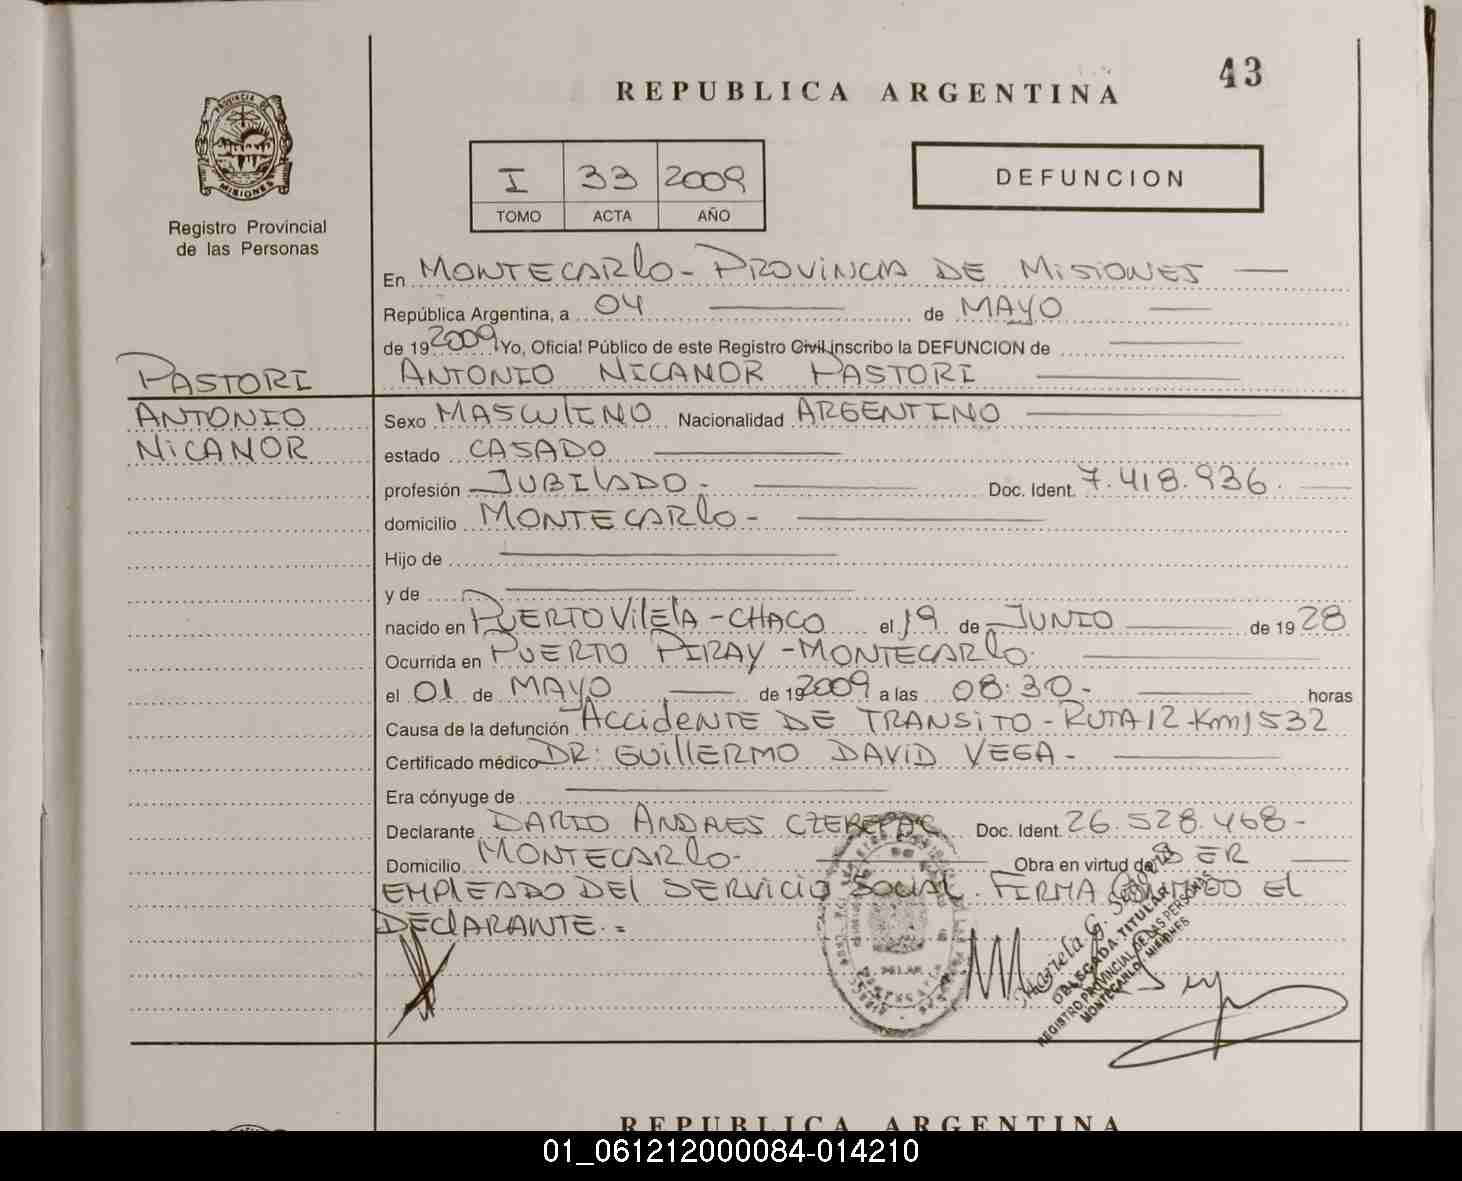 43
REPUBLICA ARGENTINA
PROVINCIA DE
MISIONES
Registro Provincial
de las Personas
I 33 2009
TOMO ACTA AÑO
DEFUNCION
En MONTECARLO - PROVINCIA DE MISIONES
República Argentina, a 04 de MAYO
de 19 2009 Yo, Oficial Público de este Registro Civil inscribo la DEFUNCION de
PASTORI
ANTONIO NICANOR PASTORI
ANTONIO
NICANOR
Sexo MASCULINO Nacionalidad ARGENTINO
estado CASADO
profesión JUBILADO - Doc. Ident. 7.418.936.
domicilio MONTECARLO -
Hijo de
y de
nacido en PUERTO VILELA - CHACO el 19 de JUNIO de 19 28
Ocurrida en PUERTO PIRAY - MONTECARLO.
el 01 de MAYO de 19 2009 a las 08:30 - horas
Causa de la defunción ACCIDENTE DE TRANSITO - RUTA 12 - Km 1532
Certificado médico DR: GUILLERMO DAVID VEGA -
Era cónyuge de
Declarante DARIO ANDRES CZEREPAK Doc. Ident. 26.528.468 -
Domicilio MONTECARLO - Obra en virtud de SER
EMPLEADO DEL SERVICIO SOCIAL. FIRMA CONMIGO EL
DECLARANTE. =
Mariela G.
DELEGADA TITULAR
REGISTRO PROVINCIAL DE LAS PERSONAS
MONTECARLO - MISIONES
REPUBLICA ARGENTINA
01_061212000084-014210